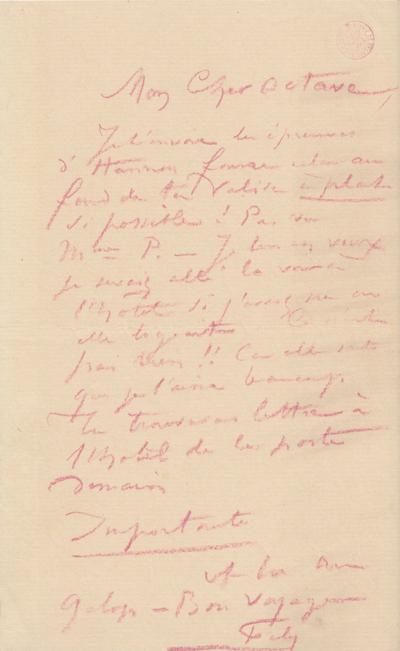 Mon Cher Octave,
Je t'envoie les épreuves
d'Hannon fourre cela au
fond de ta valise à plat
si possible ! Pas vu
Mme P. — J
je serais allé la voir à
l'Hôtel si j'avais su où
elle logeait
fais rien !! Car elle sait
que je l'aime beaucoup.
Tu trouveras lettre à
l'Hôtel de la poste
Demain
Importante
Galop — Bon Voyage
Fély